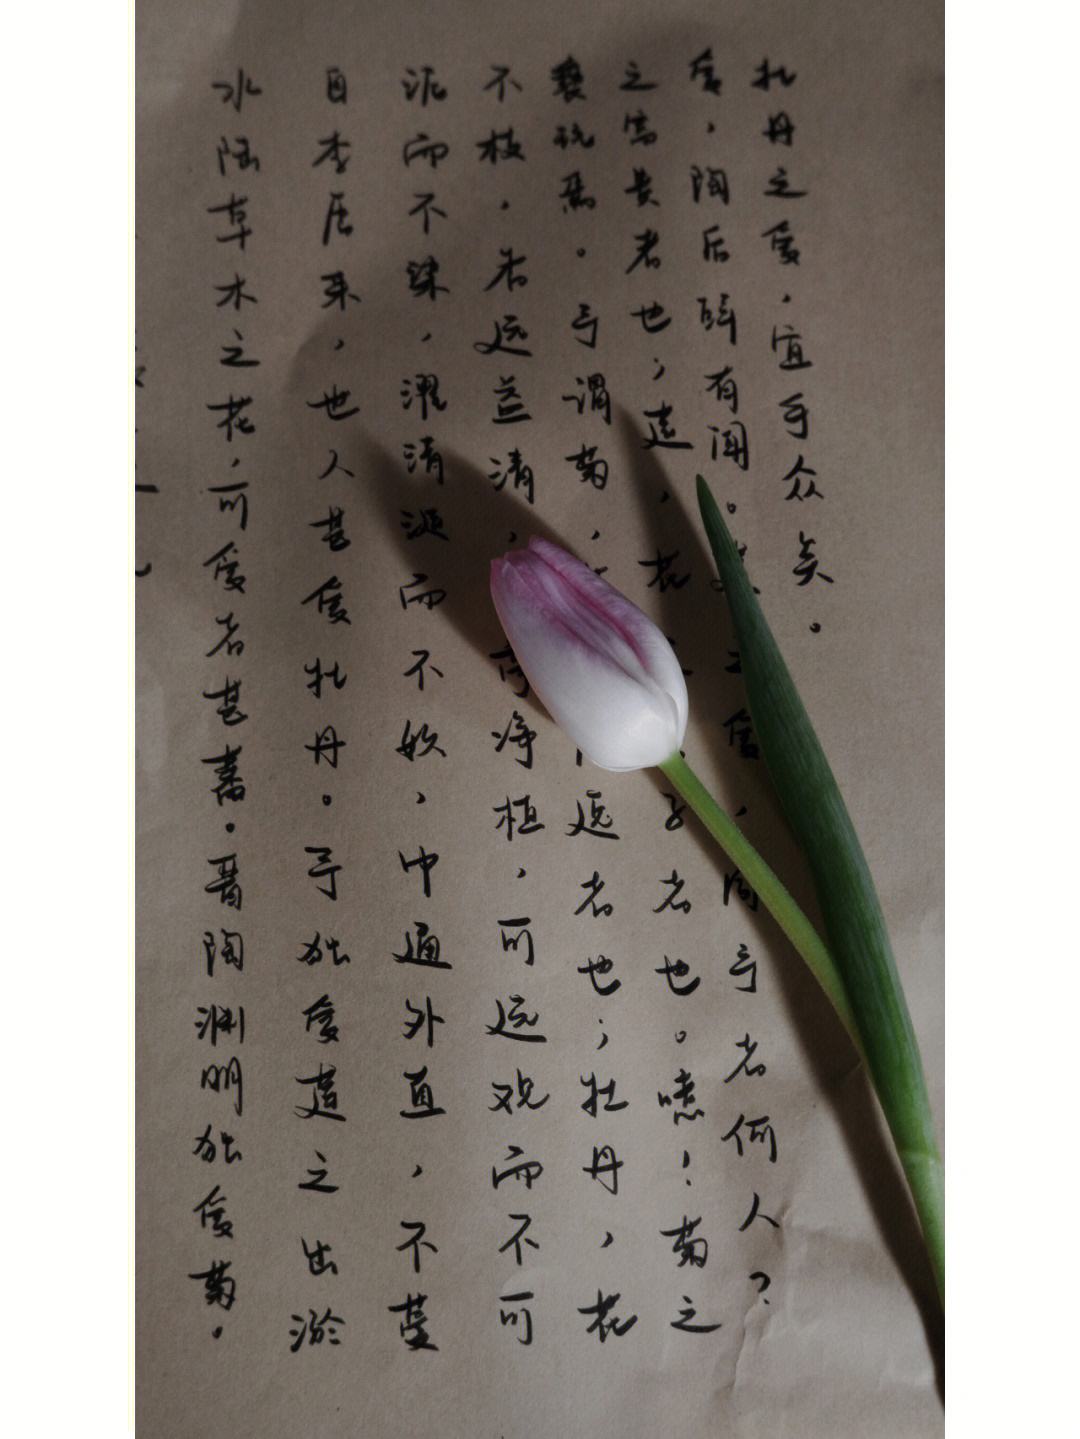 水陆草木之花,可爱者甚蕃。晋陶渊明独爱菊。
自李唐来,世人甚爱牡丹。予独爱莲之出淤
泥而不染,濯清涟而不妖,中通外直,不蔓
不枝,香远益清,亭净植,可远观而不可
亵玩焉。予谓菊,逸者也;牡丹,花
之富贵者也;莲,花子者也。噫!菊之
爱,陶后鲜有闻。之爱,同予者何人?
牡丹之爱,宜乎众矣。